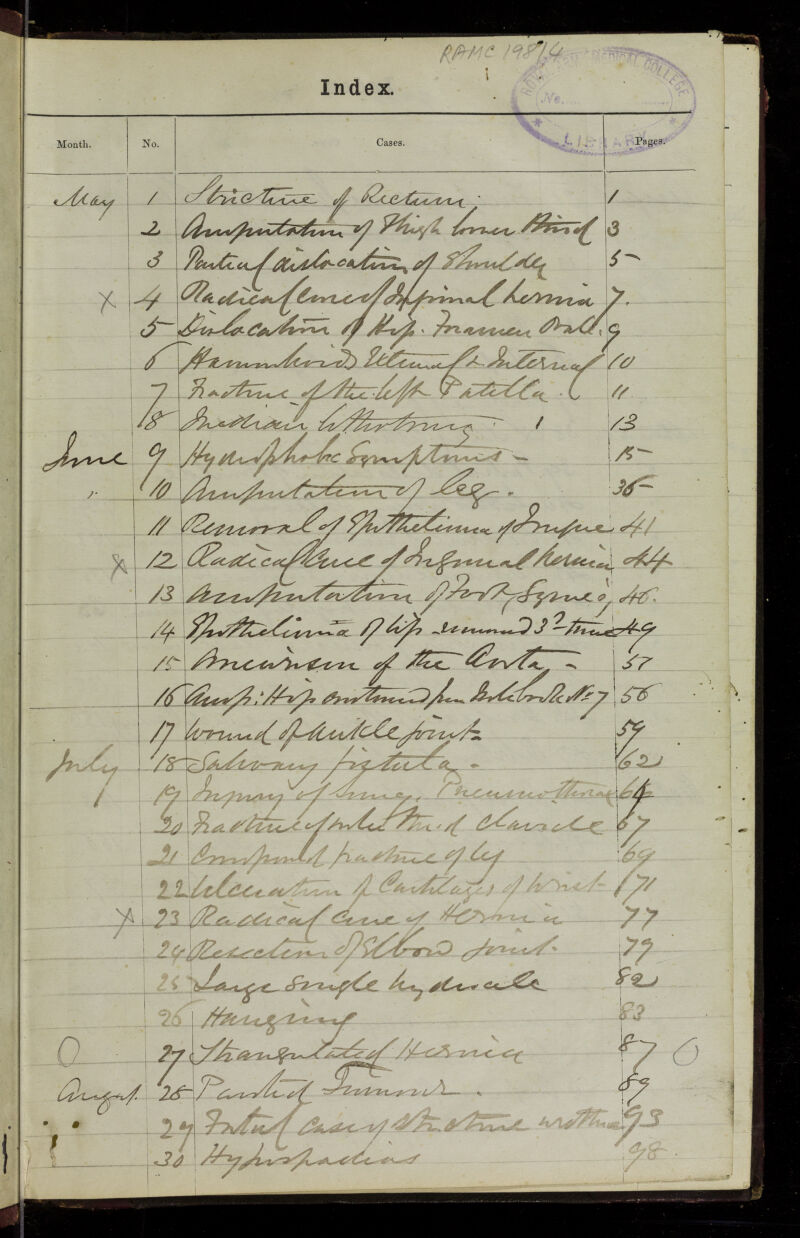 RAMC 198/4
ROYAL ARMY MEDICAL COLLEGE
No.
LIBRARY
Index.
Month. No. Cases. Pages.
May 1 Stricture of Rectum. 1
2 Amputation of Thigh lower third 3
3 Partial dislocation of Shoulder 5
x 4 Radical cure of Inguinal hernia 7.
5 Dislocation of Hip. Foramen Ovale. 9
6 Haemorrhoids External & Internal 10
7 Fracture of the left Patella. 11
8 Median lithotomy 13
June 9 Hydrophobic Symptoms - 15
" 10 Amputation of leg. 35
11 Removal of Epithelioma of Tongue 41
x 12 Radical Cure of Inguinal hernia 44
13 Amputation of Foot, Syme's, 46.
14 Epithelioma of lip removed 3rd time 49
15 Aneurism of the Aorta - 51
16 Amp: Hip continued from Notebook No 7 56
17 Wound of ankle joint 59
July 18 Salivary fistula. 62
19 Injury of lung. Pneumothorax 64
20 Fracture of outer third clavicle 67
21 Compound fracture of leg 69
22 Ulceration of Cartilages of Wrist 71
x 23 Radical cure of Hernia 77
24 Resection of Elbow joint. 79
25 Large single hydrocele 82
26 Hanging 83
O 27 Strangulated Hernia 87 O
August. 28 Parotid Tumour. 89
29 Fatal case of stricture urethra 93
30 Hypospadias 98.